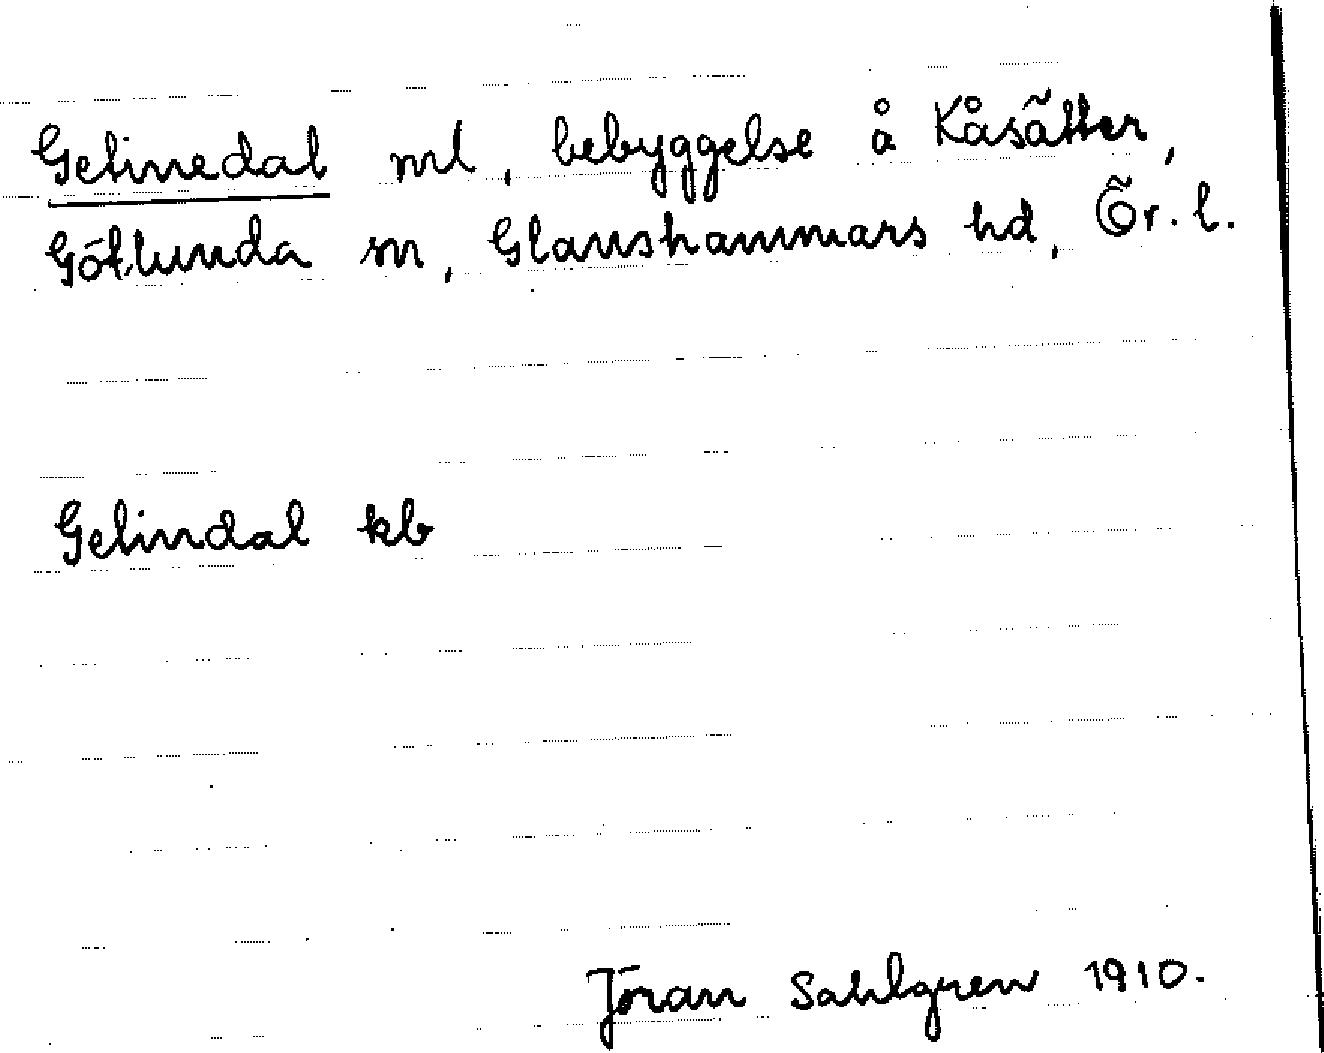 Gelinedal ml, bebyggelse å Kåsätter,
Götlunda sn, Glanshammars hd, Ör. l.
Gelindal kb
Jöran Sahlgren 1910.